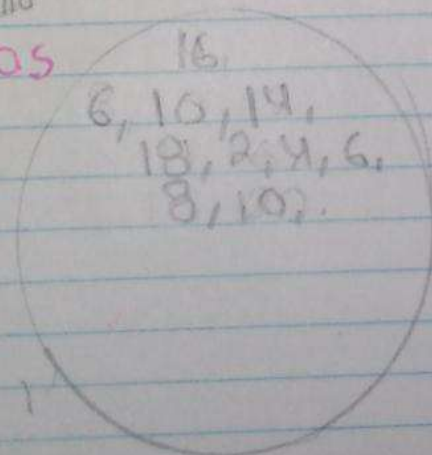 os
16,
6, 10, 14,
18, 2, 4, 6,
8, 10, .